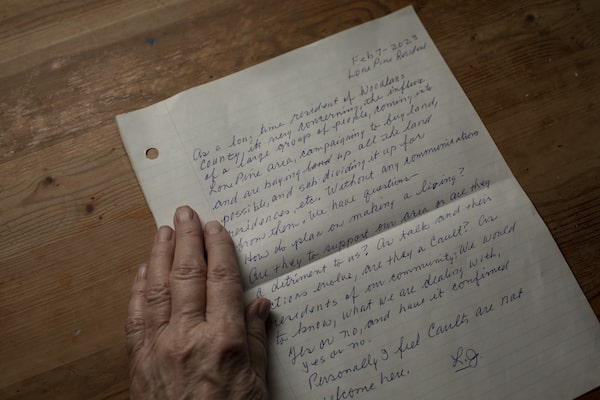 Feb 7-2023
Lone Pine Resident
As a long time resident of Woodlans
County, its very concerning, the influx
of a large group of people, coming into
Lone Pine area, campaigning to buy land,
and are buying land up all the land
possible, and sub dividing it up for
residences, etc. Without any communication
from them, we have question
How do plan on making a living?
Are they to support our area or are they
a detriment to us? As talk and their
actions evolve, are they a Cault? As
residents of our community; We would
to know, what we are dealing with,
Yes or no, and have it confirmed
yes or no.
Personally I feel Caults are not
welcome here. L.J.